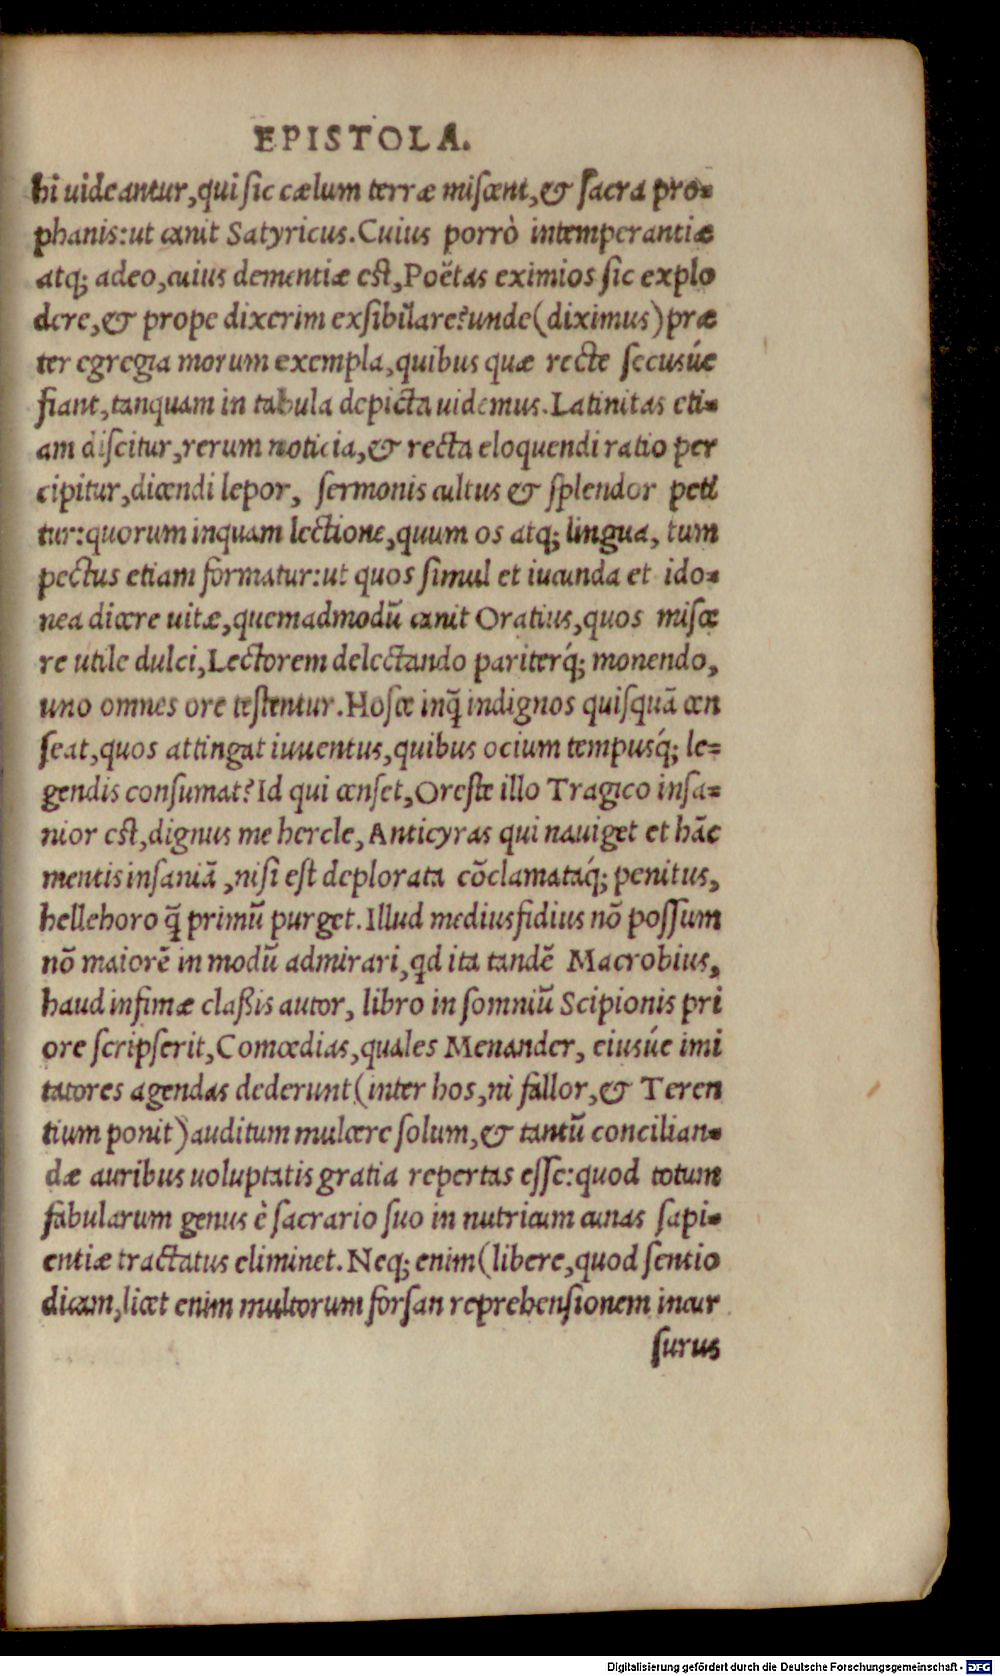 EPISTOLA.
hi uideantur, qui sic cælum terræ miscent, & sacra pro=
phanis: ut canit Satyricus. Cuius porrò intemperantiæ
atq; adeo, cuius dementiæ est, Poëtas eximios sic explo
dere, & prope dixerim exsibilare? unde (diximus) præ
ter egregia morum exempla, quibus quæ recte secusúe
fiant, tanquam in tabula depicta uidemus. Latinitas eti=
am discitur, rerum noticia, & recta eloquendi ratio per
cipitur, dicendi lepor, sermonis cultus & splendor peti
tur: quorum inquam lectione, quum os atq; lingua, tum
pectus etiam formatur: ut quos simul et iucunda et ido=
nea dicere uitæ, quemadmodũ canit Oratius, quos misce
re utile dulci, Lectorem delectando pariterq́; monendo,
uno omnes ore testentur. Hosce inq̃ indignos quisquã cen
seat, quos attingat iuuentus, quibus ocium tempusq́; le=
gendis consumat? Id qui censet, Oreste illo Tragico insa=
nior est, dignus me hercle, Anticyras qui nauiget et hãc
mentis insaniã, nisi est deplorata cõclamataq́; penitus,
helleboro q̃ primũ purget. Illud mediusfidius nõ possum
nõ maiorẽ in modũ admirari, qd ita tandẽ Macrobius,
haud infimæ claßis autor, libro in somniũ Scipionis pri
ore scripserit, Comœdias, quales Menander, eiusúe imi
tatores agendas dederunt (inter hos, ni fallor, & Teren
tium ponit) auditum mulcere solum, & tantũ concilian=
dæ auribus uoluptatis gratia repertas esse: quod totum
fabularum genus è sacrario suo in nutricum cunas sapi=
entiæ tractatus eliminet. Neq; enim (libere, quod sentio
dicam, licet enim multorum forsan reprehensionem incur
surus
Digitalisierung gefördert durch die Deutsche Forschungsgemeinschaft - DFG